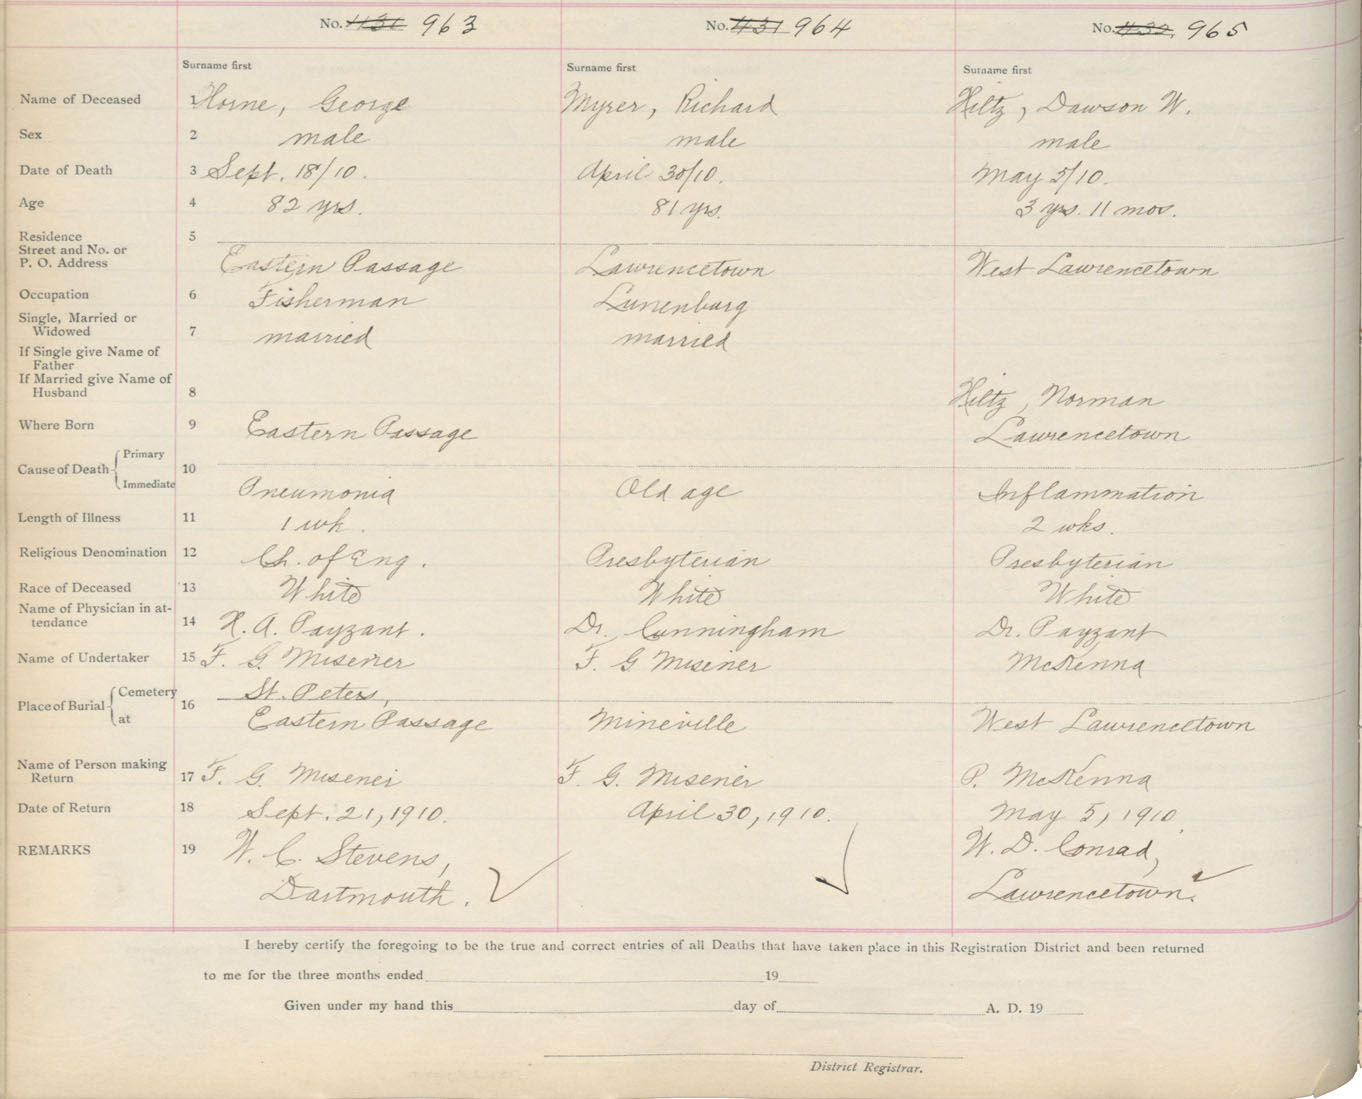 No. 963 No. 431 964 No. 965
Surname first Surname first Surname first
Name of Deceased 1 Horne, George Myrer, Richard Hiltz, Dawson W.
Sex 2 male male male
Date of Death 3 Sept. 18/10. April 30/10. May 5/10.
Age 4 82 yrs. 81 yrs. 3 yrs. 11 mos.
Residence 5
Street and No. or
P. O. Address Eastern Passage Lawrencetown West Lawrencetown
Occupation 6 Fisherman Lunenburg
Single, Married or
Widowed 7 married married
If Single give Name of
Father
If Married give Name of
Husband 8 Hiltz, Norman
Where Born 9 Eastern Passage Lawrencetown
Primary
Cause of Death 10
Immediate Pneumonia Old age Inflammation
Length of Illness 11 1 wk. 2 wks.
Religious Denomination 12 Ch. of Eng. Presbyterian Presbyterian
Race of Deceased 13 White White White
Name of Physician in at-
tendance 14 H. A. Payzant. Dr. Cunningham Dr. Payzant
Name of Undertaker 15 F. G. Misener F. G Misener McKenna
Cemetery St. Peters,
Place of Burial 16
at Eastern Passage Mineville West Lawrencetown
Name of Person making
Return 17 F. G. Misener F. G. Misener P. McKenna
Date of Return 18 Sept. 21, 1910. April 30, 1910. May 5, 1910.
REMARKS 19 W. C. Stevens, W. D. Conrad,
Dartmouth. Lawrencetown.
I hereby certify the foregoing to be the true and correct entries of all Deaths that have taken place in this Registration District and been returned
to me for the three months ended 19
Given under my hand this day of A. D. 19
District Registrar.